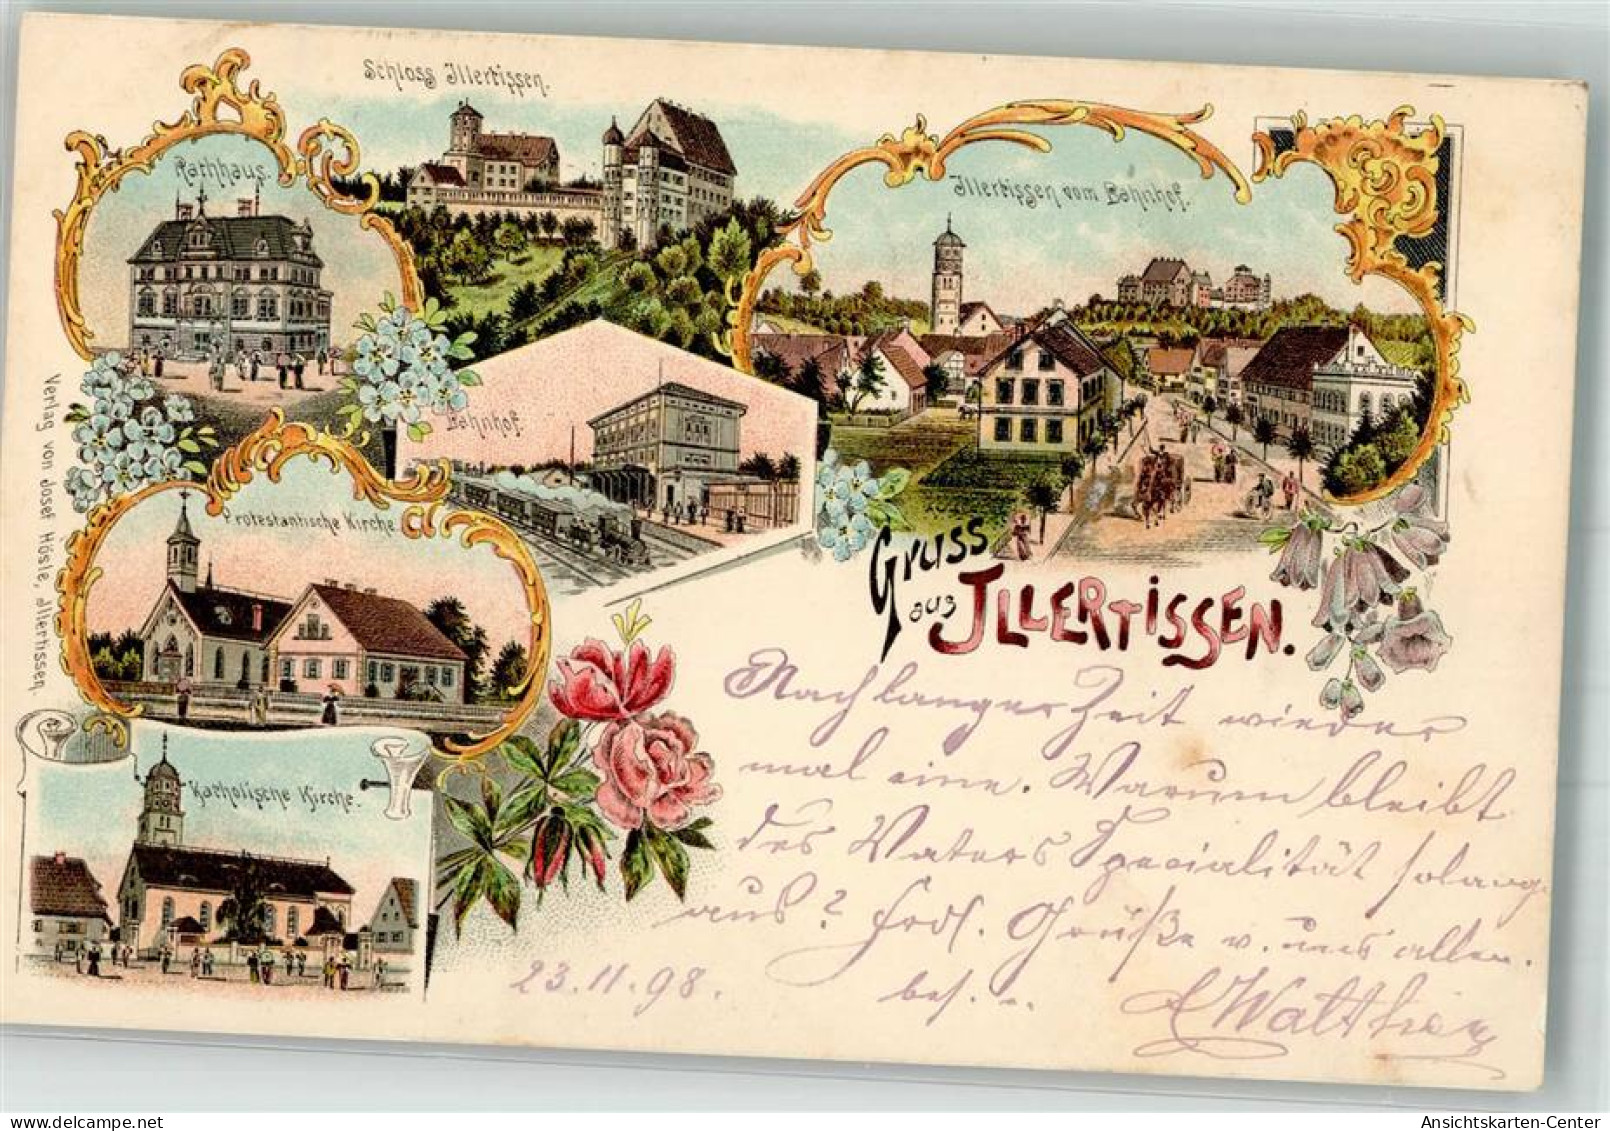 Schloss Illertissen.
Rathhaus.
Illertissen vom Bahnhof.
Bahnhof
Protestantische Kirche
Katholische Kirche.
Verlag von Josef Hösle, Illertissen.
Gruss
aus ILLERTISSEN.
Nach langer Zeit wieder
mal eine. Warum bleibt
des Vaters Spezialität solang
aus? Frdl. Grüße v. uns allen.
23.11.98. bes. v.
Ansichtskarten-Center
www.delcampe.net